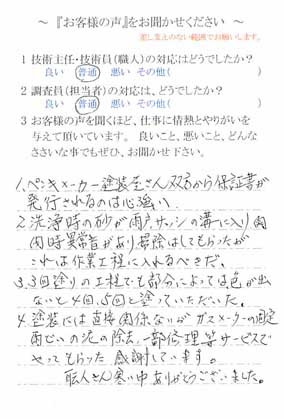 ～『お客様の声』をお聞かせください～
差し支えのない範囲でお願いします。
1 技術主任・技術員（職人）の対応はどうでしたか？
良い 普通 悪い その他（ ）
2 調査員（担当者）の対応は、どうでしたか？
良い 普通 悪い その他（ ）
3 お客様の声を聞くほど、仕事に情熱とやりがいを
与えて頂いています。 良いこと、悪いこと、どんな
ささいな事でもぜひ、お聞かせ下さい。
1、ペンキメーカー塗装屋さん双方から保証書が
発行されるのは心強い。
2、洗浄時の砂が雨戸、サッシの溝に入り開
閉時異常音があり掃除はしてもらったが
これは作業工程に入れるべきだ。
3、3回塗りの工程でも部分によっては色が出
ないと4回、5回と塗っていただいた。
4、塗装には直接関係ないがガスメーターの固定
雨どいの泥の除去、一部修理等サービスで
やってもらった 感謝しています。
職人さん寒い中ありがとうございました。